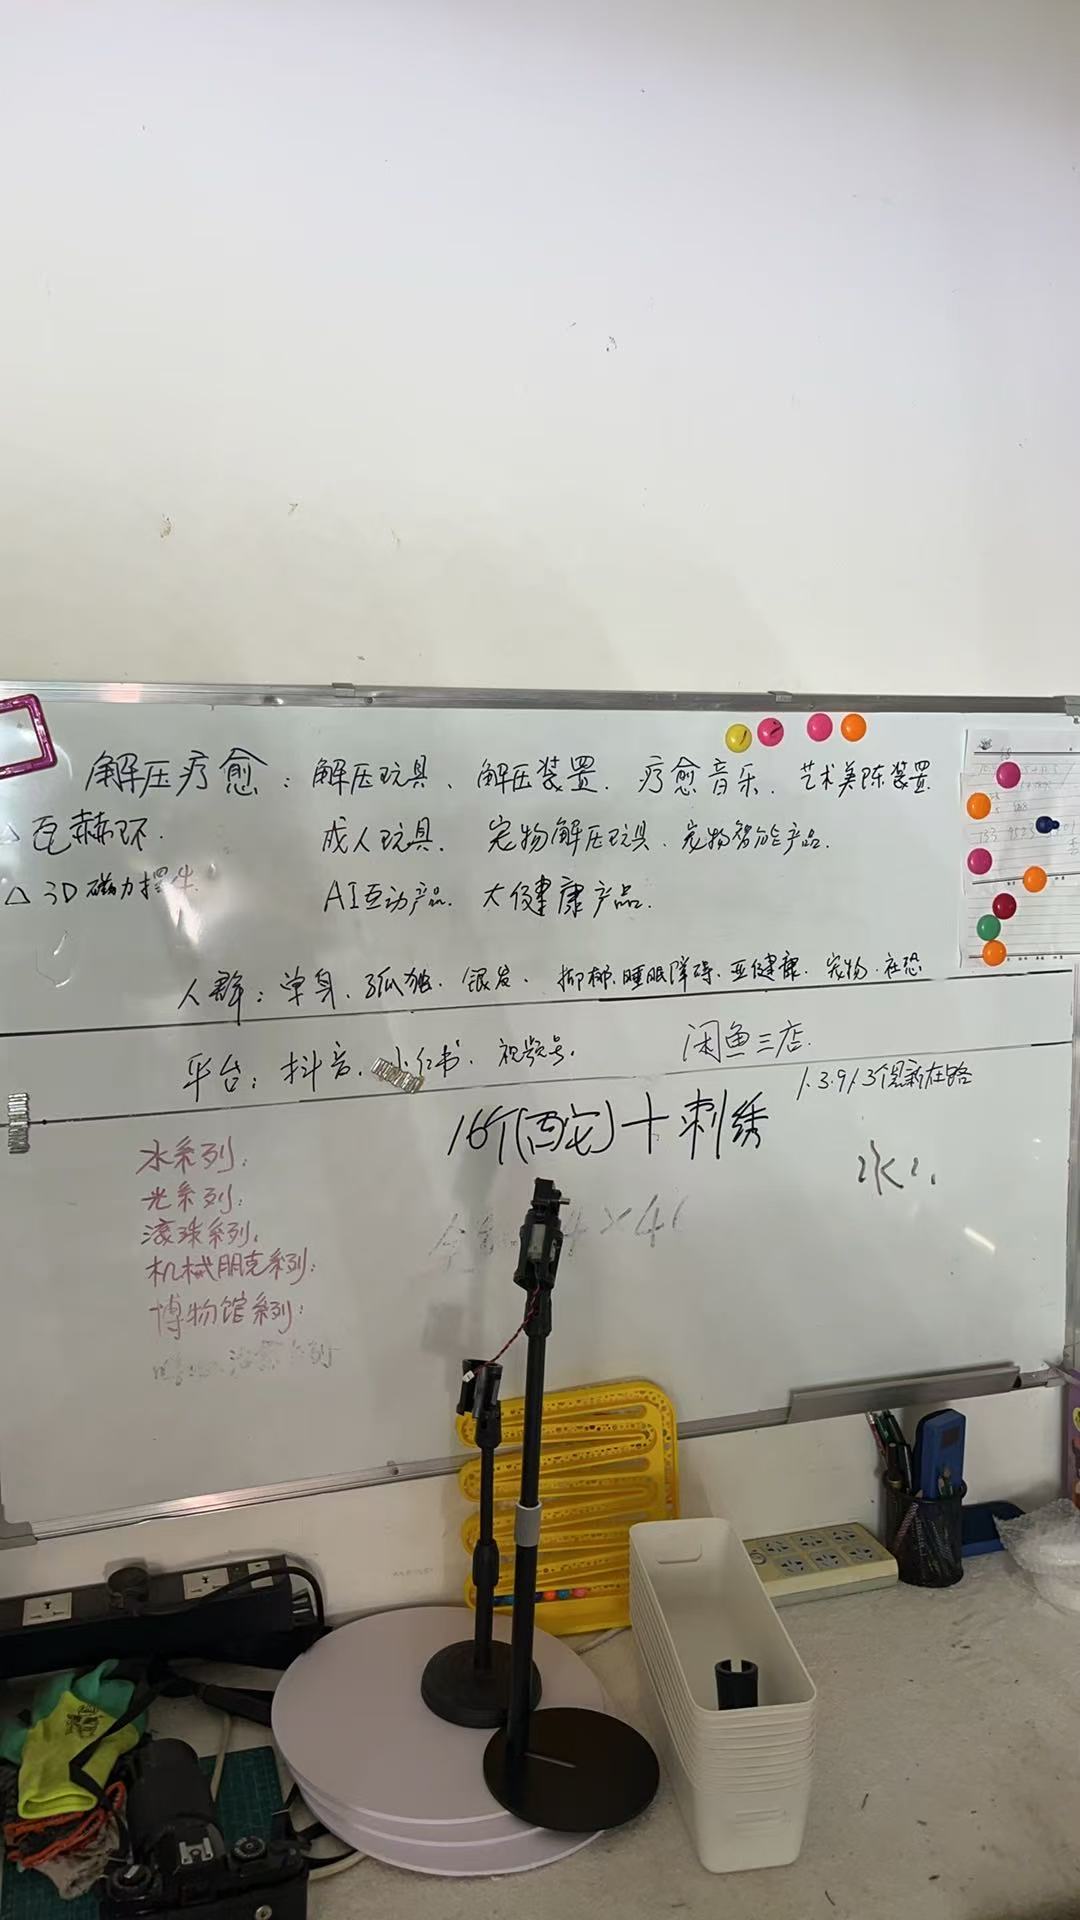 解压疗愈：解压玩具、解压装置、疗愈音乐、艺术美陈装置
△瓦赫环 成人玩具、宠物解压玩具、宠物智能产品.
△3D磁力摆件 AI互动产品、大健康产品.
人群：单身、孤独、银发、抑郁、睡眠障碍、亚健康、宠物、社恐
平台：抖音、小红书、视频号. 闲鱼三店.
16个(西安)十刺绣
水系列：
光系列：
滚珠系列：
机械朋克系列：
博物馆系列：